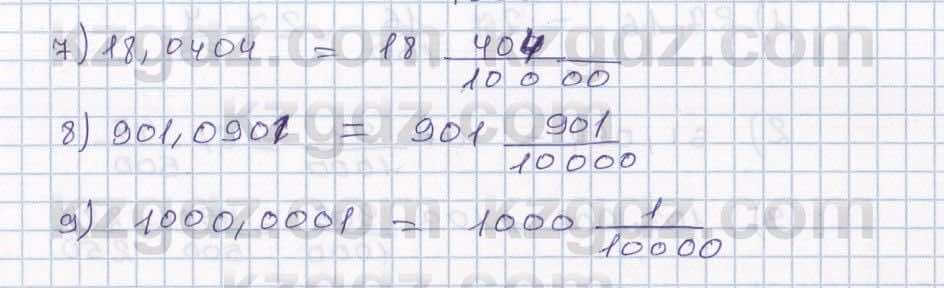 7) 18,0404 = 18 404/10000
8) 901,0901 = 901 901/10000
9) 1000,0001 = 1000 1/10000
kzgdz.com kzgdz.com
kzgdz.com
kzgdz.com kzgdz.com
kzgdz.com